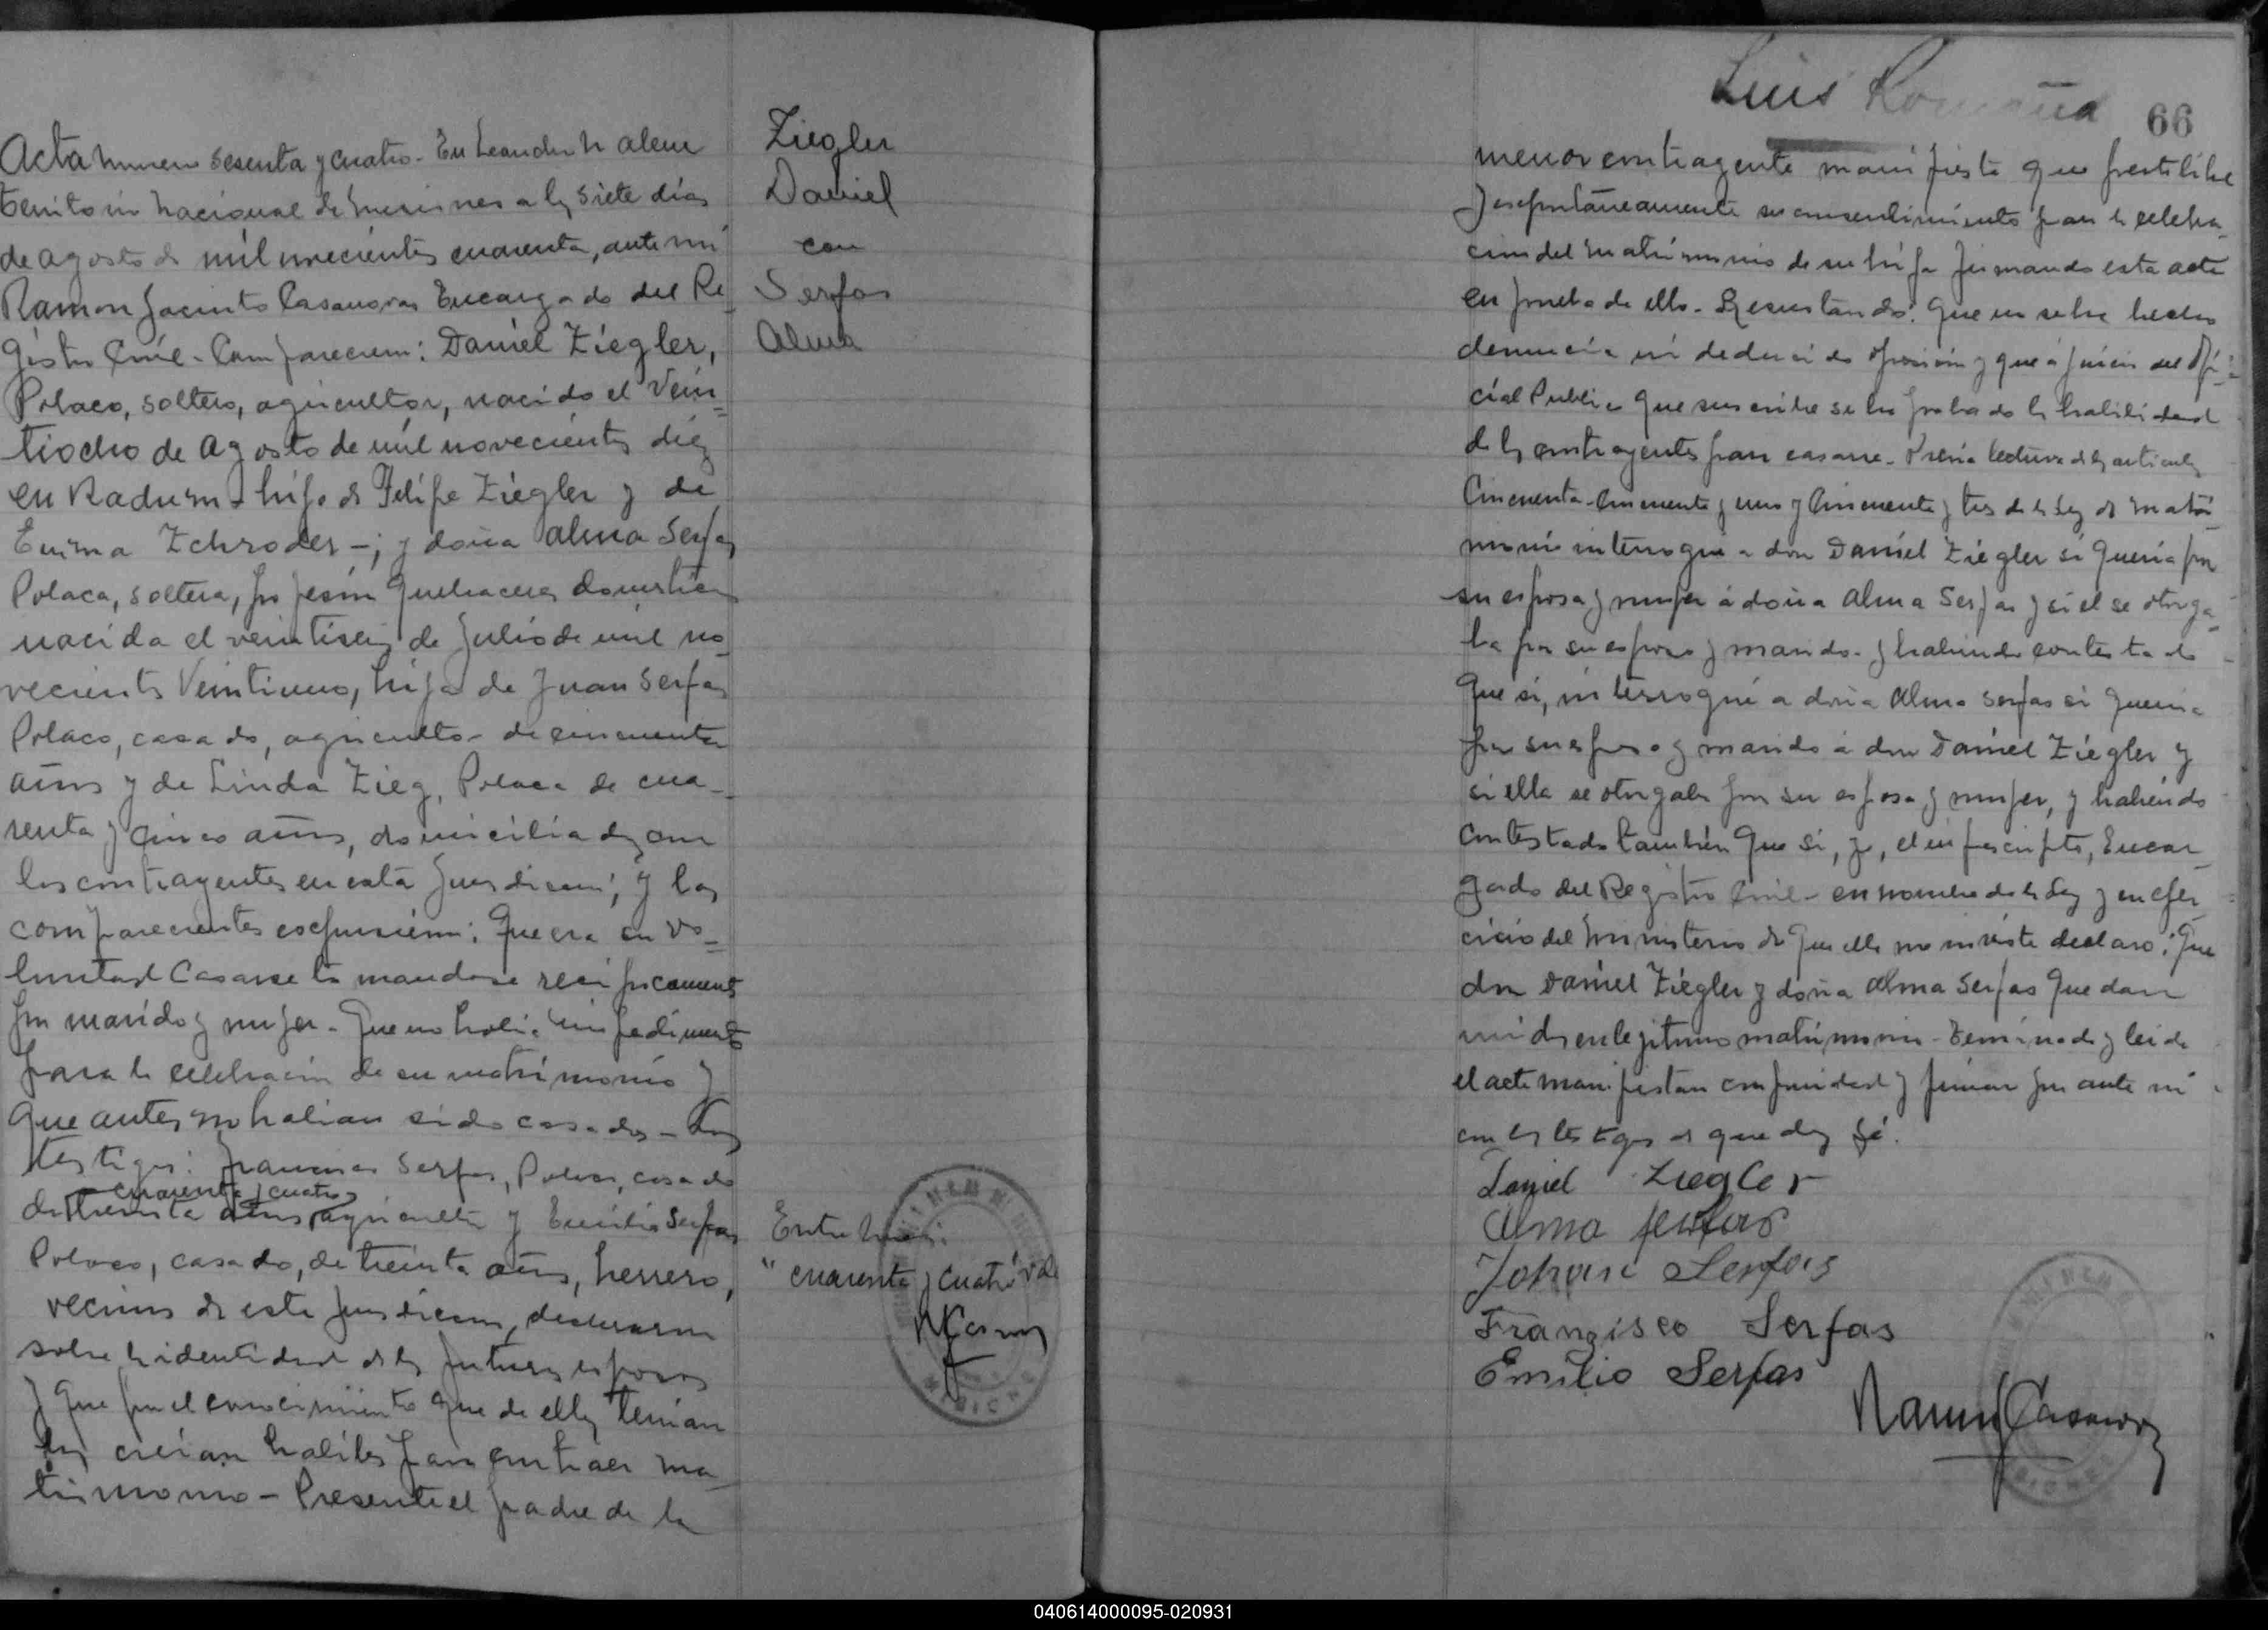 Acta numero sesenta y cuatro - En Leandro N Alem
territorio nacional de Misiones a los siete dias
de agosto de mil novecientos cuarenta, ante mi
Ramon Jacinto Casanovas Encargado del Re-
gistro Civil - Comparecieron: Daniel Ziegler,
Polaco, soltero, agricultor, nacido el Vein-
tiocho de agosto de mil novecientos diez
en Radum - hijo de Felipe Ziegler y de
Emma Zchroder -; y doña Alma Serfas
Polaca, soltera, profesión quehaceres domesticos
nacida el veintiseis de Julio de mil no-
vecientos Veintiuno, hija de Juan Serfas
Polaco, casado, agricultor de cincuenta
años y de Linda Zieg, Polaca de cua-
renta y cinco años, domiciliados con
los contrayentes en esta Jurisdicción; y los
comparecientes expusieron: Que era su vo-
luntad Casarse tomandose reciprocamente
por marido y mujer - Que no había impedimento
para la celebración de su matrimonio y
que antes no habian sido casados - Los
testigos: Francisco Serfas, Polaco, casado
cuarenta y cuatro
de treinta años, agricultor y Emilio Serfas
Polaco, casado, de treinta años, herrero,
vecinos de esta Jurisdiccion, declararon
sobre la identidad de los futuros esposos
y que por el conocimiento que de ellos tenian
los creian habiles para contraer ma-
trimonio - Presente el padre de la
Ziegler
Daniel
con
Serfas
Alma
Entre lineas:
"cuarenta y cuatro" vale
Luis Romaña
66
menor contrayente manifiesta que presta libre
y espontáneamente su consentimiento para la celebra-
cion del matrimonio de su hija firmando esta acta
en prueba de ello - Resultando: Que no se ha hecho
denuncia ni deducido oposición y que á juicio del Ofi-
cial Publico que suscribe se ha probado la habilidad
de los contrayentes para casarse - Previa lectura de los articulos
Cincuenta - Cincuenta y uno y Cincuenta y tres de la Ley de Matri-
monio interrogué a don Daniel Ziegler si queria por
su esposa y mujer á doña Alma Serfas y si el se otorga-
ba por su esposo y marido - y habiendo contestado
Que si, interrogué a doña Alma Serfas si queria
por su esposo y marido á don Daniel Ziegler y
si ella se otorgaba por su esposa y mujer, y habiendo
contestado también Que Si, yo, el infrascripto, Encar-
gado del Registro Civil - en nombre de la Ley y en ejer-
cicio del ministerio de que ella me inviste declaro: Que
don Daniel Ziegler y doña Alma Serfas quedan
unidos en legitimo matrimonio - Terminada y leida
el acta manifiestan conformidad y firman por ante mi
con los testigos de que doy fé.
Daniel Ziegler
Alma Serfas
Johann Serfas
Franzisco Serfas
Emilio Serfas
Ramon J Casanovas
040614000095-020931